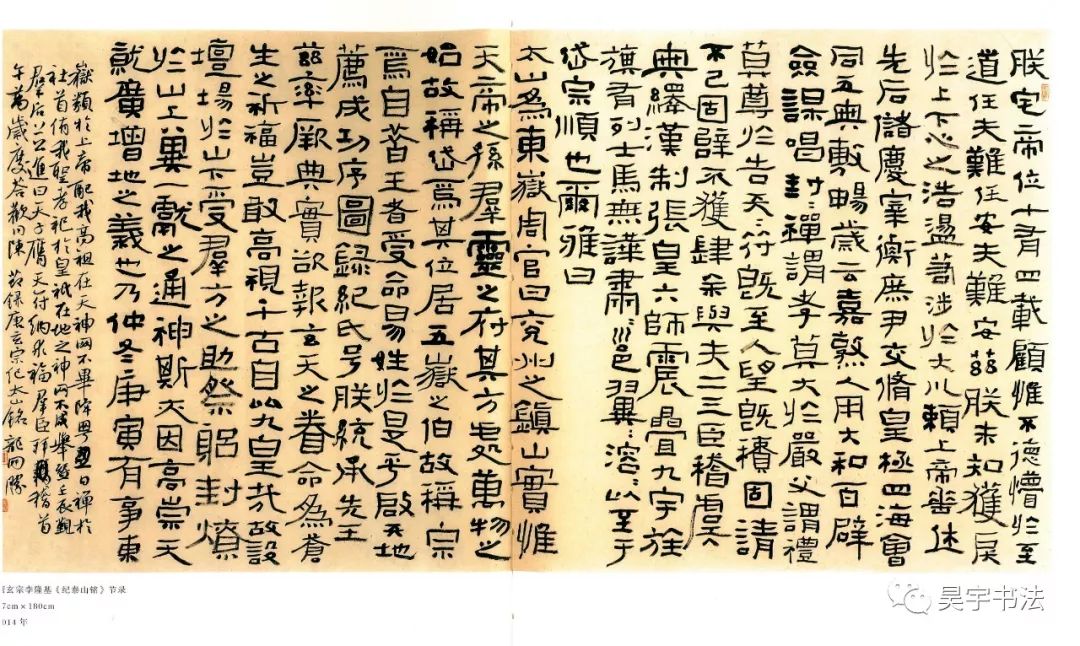 朕宅帝位十有四載顧惟不德懵於至
道任夫難任安夫難安茲朕未知獲戾
於上下心之浩盪若涉於大川賴上帝垂休
先后儲慶宰衡庶尹交脩皇極四海會
同五典敷暢歲云嘉熟人用大和百辟
僉謀唱封禪謂孝莫大於嚴父謂禮
莫尊於告天符既至人望既積固請
不已固辭不獲肆余與夫二三臣稽虞
典繹漢制張皇六師震疊九宇旌
旗有列士馬無譁肅〻邕〻翼〻溶〻以至于
岱宗順也爾雅曰
太山為東嶽周官曰兗州之鎮山實惟
天帝之孫羣靈之府其方處萬物之
始故稱岱焉其位居五嶽之伯故稱宗
焉自昔王者受命易姓於是乎啟天地
薦成功序圖錄紀氏号朕統承先王
茲率厥典實欲報玄天之眷命為蒼
生之祈福豈敢高視千古自比九皇哉故設
壇場於山下受羣方之助祭躬封燎
於山上冀一獻之通神斯亦因高崇天
就廣增地之義也乃仲冬庚寅有事東
嶽類於上帝配我高祖在天神罔不畢降粤翌日禪於
社首侑我聖考祀於皇祇在地之神罔不咸舉暨壬辰覲
羣后上公進曰天子膺天符納介福羣臣拜稽首
萬歲慶答歡同陳 節錄唐玄宗紀太山銘
玄宗李隆基《纪泰山铭》节录
7cm×180cm
014 年
昊宇书法